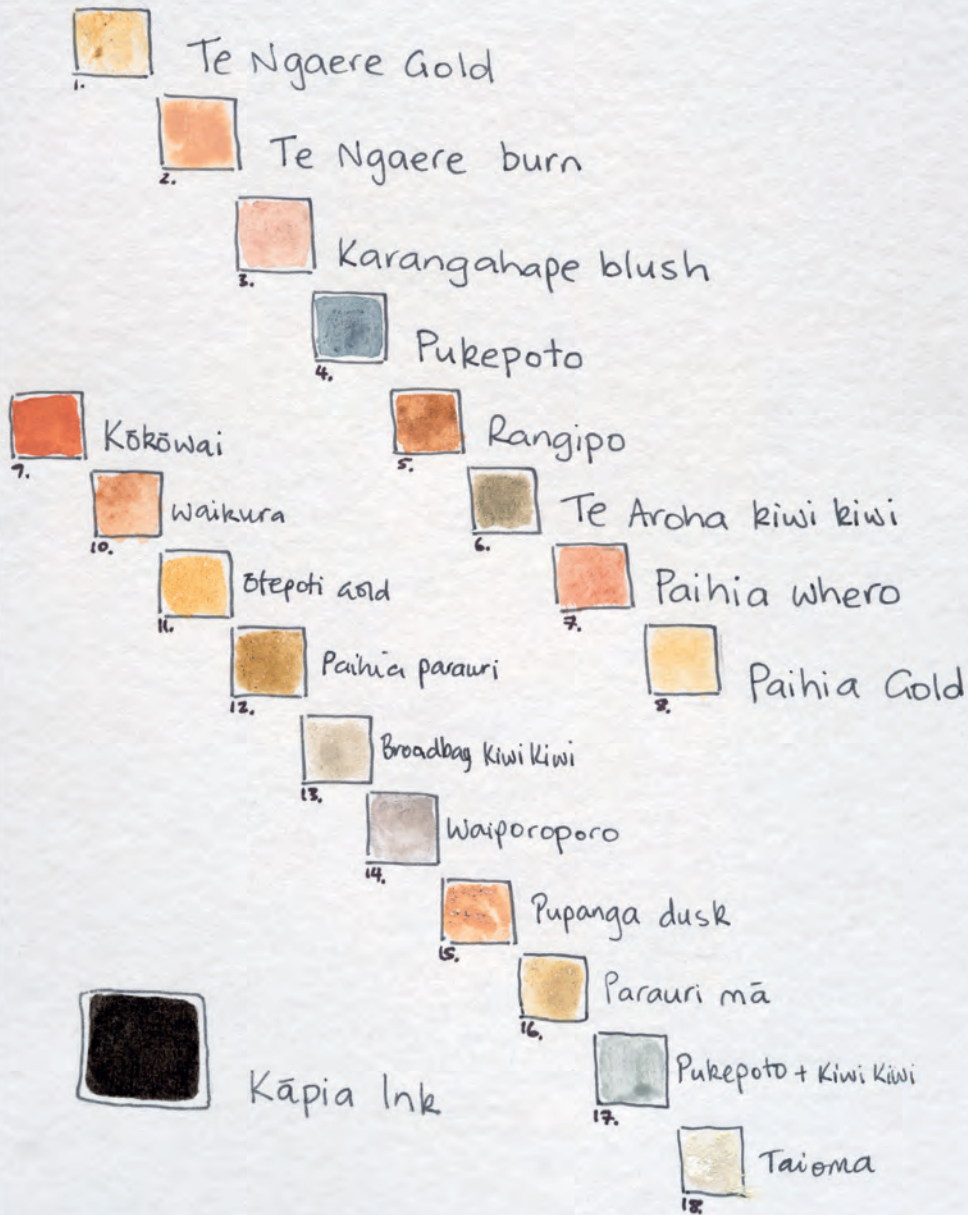 1. Te Ngaere Gold
2. Te Ngaere burn
3. Karangahape blush
4. Pukepoto
5. Rangipo
6. Te Aroha kiwi kiwi
7. Paihia whero
8. Paihia Gold
9. Kōkōwai
10. Waikura
11. Ōtepoti Gold
12. Paihia parauri
13. Broadbag Kiwi Kiwi
14. Waiporoporo
15. Pupanga dusk
16. Parauri mā
17. Pukepoto + Kiwi Kiwi
18. Taioma
Kāpia Ink